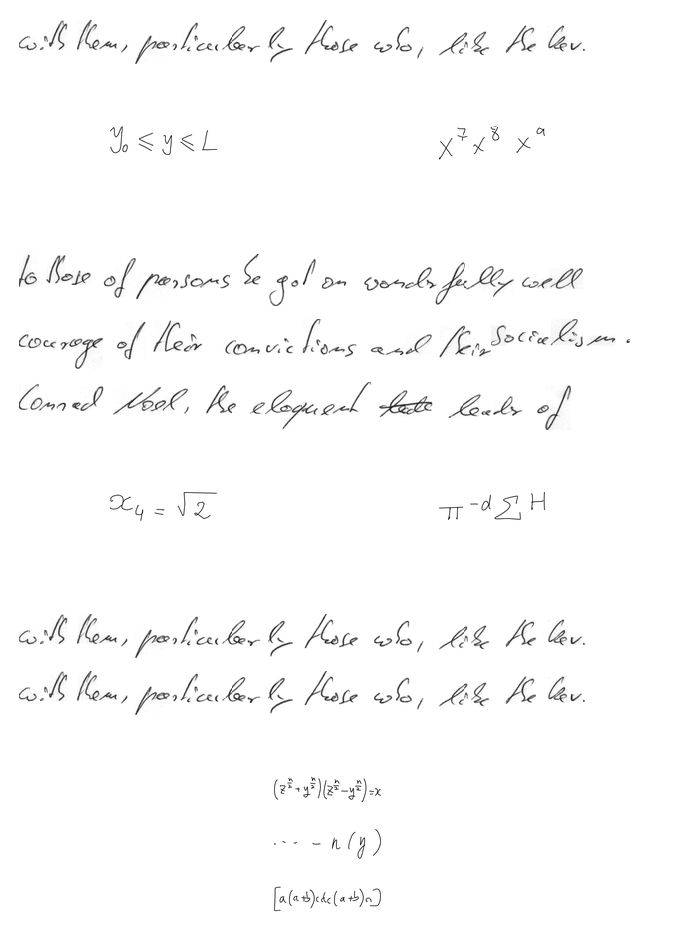 with them, particularly those who, like the Rev.
y_0 ≤ y ≤ L    x^7 x^8 x^a
to those of persons he got on wonderfully well
courage of their convictions and their Socialism.
Conrad Noel, the eloquent leader of
x_4 = √2    π^{-d} ∑ H
with them, particularly those who, like the Rev.
with them, particularly those who, like the Rev.
(z^{n/2} + y^{n/2})(z^{n/2} - y^{n/2}) = x
⋯ - n(y)
[a(a+b)cdc(a+b)a]